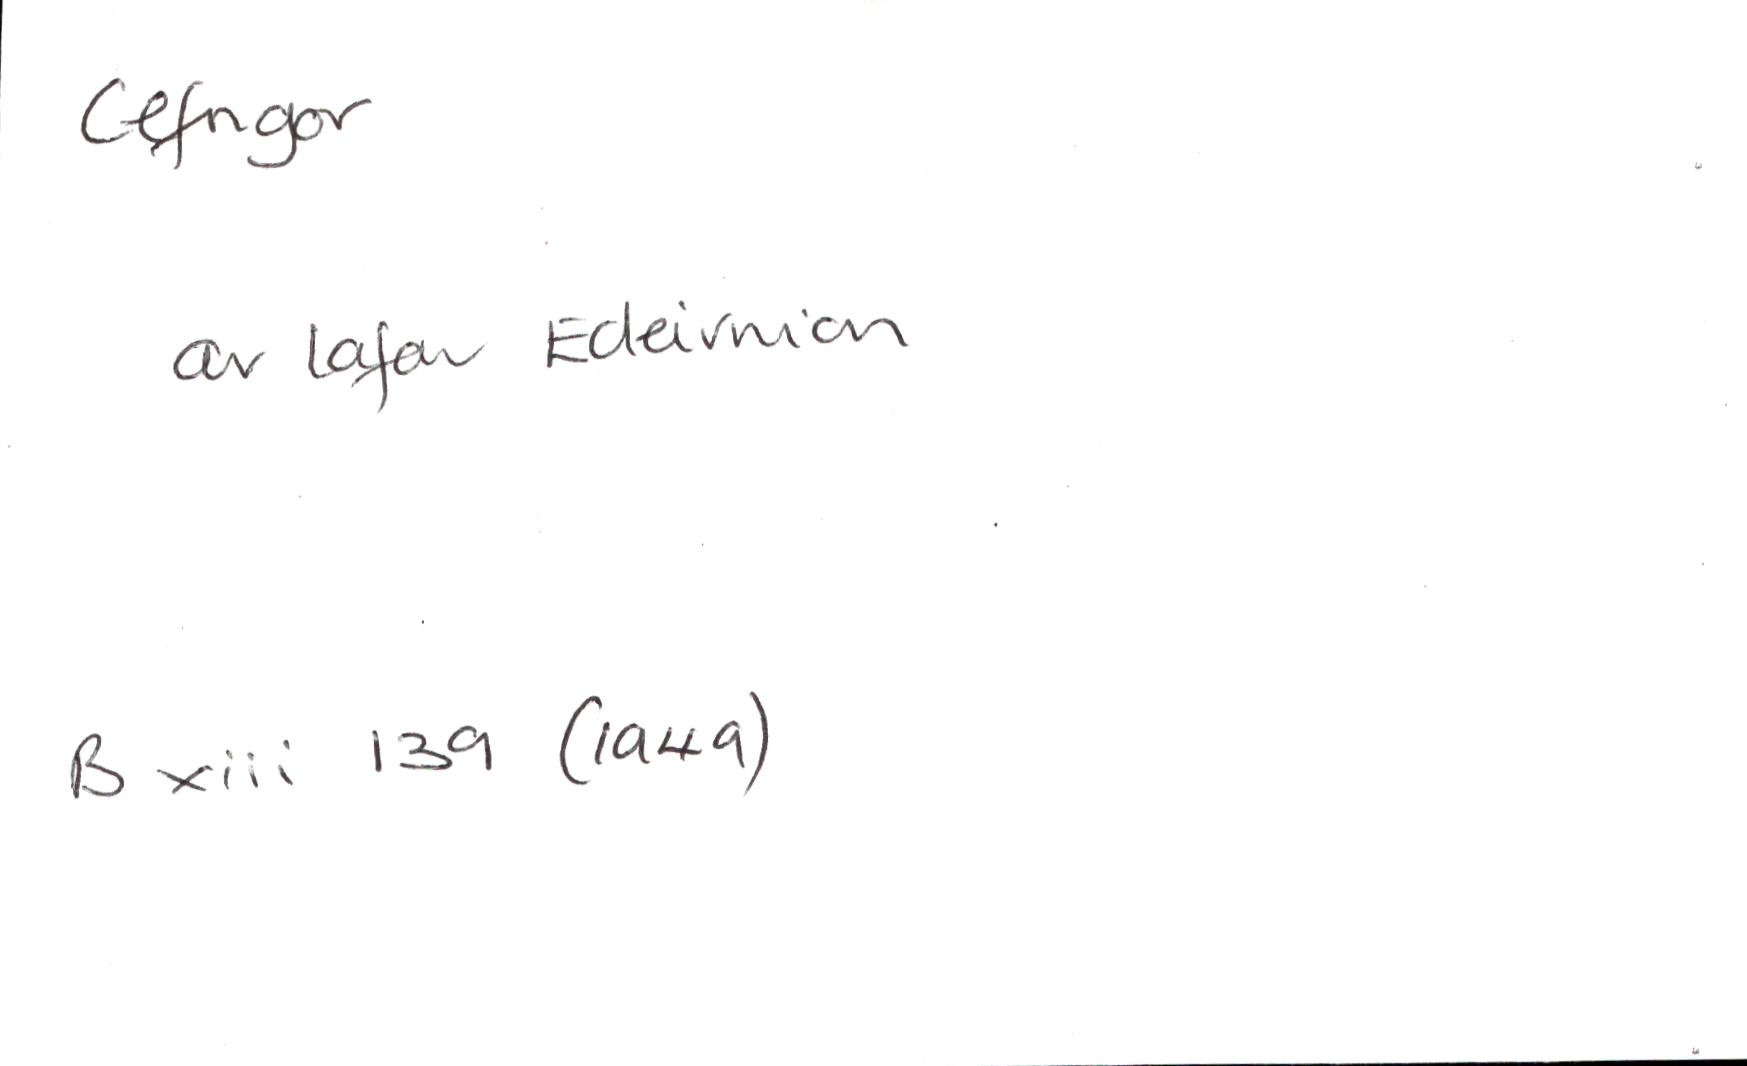 Cefngor
ar lafar Edeirnion
B xiii 139 (1949)